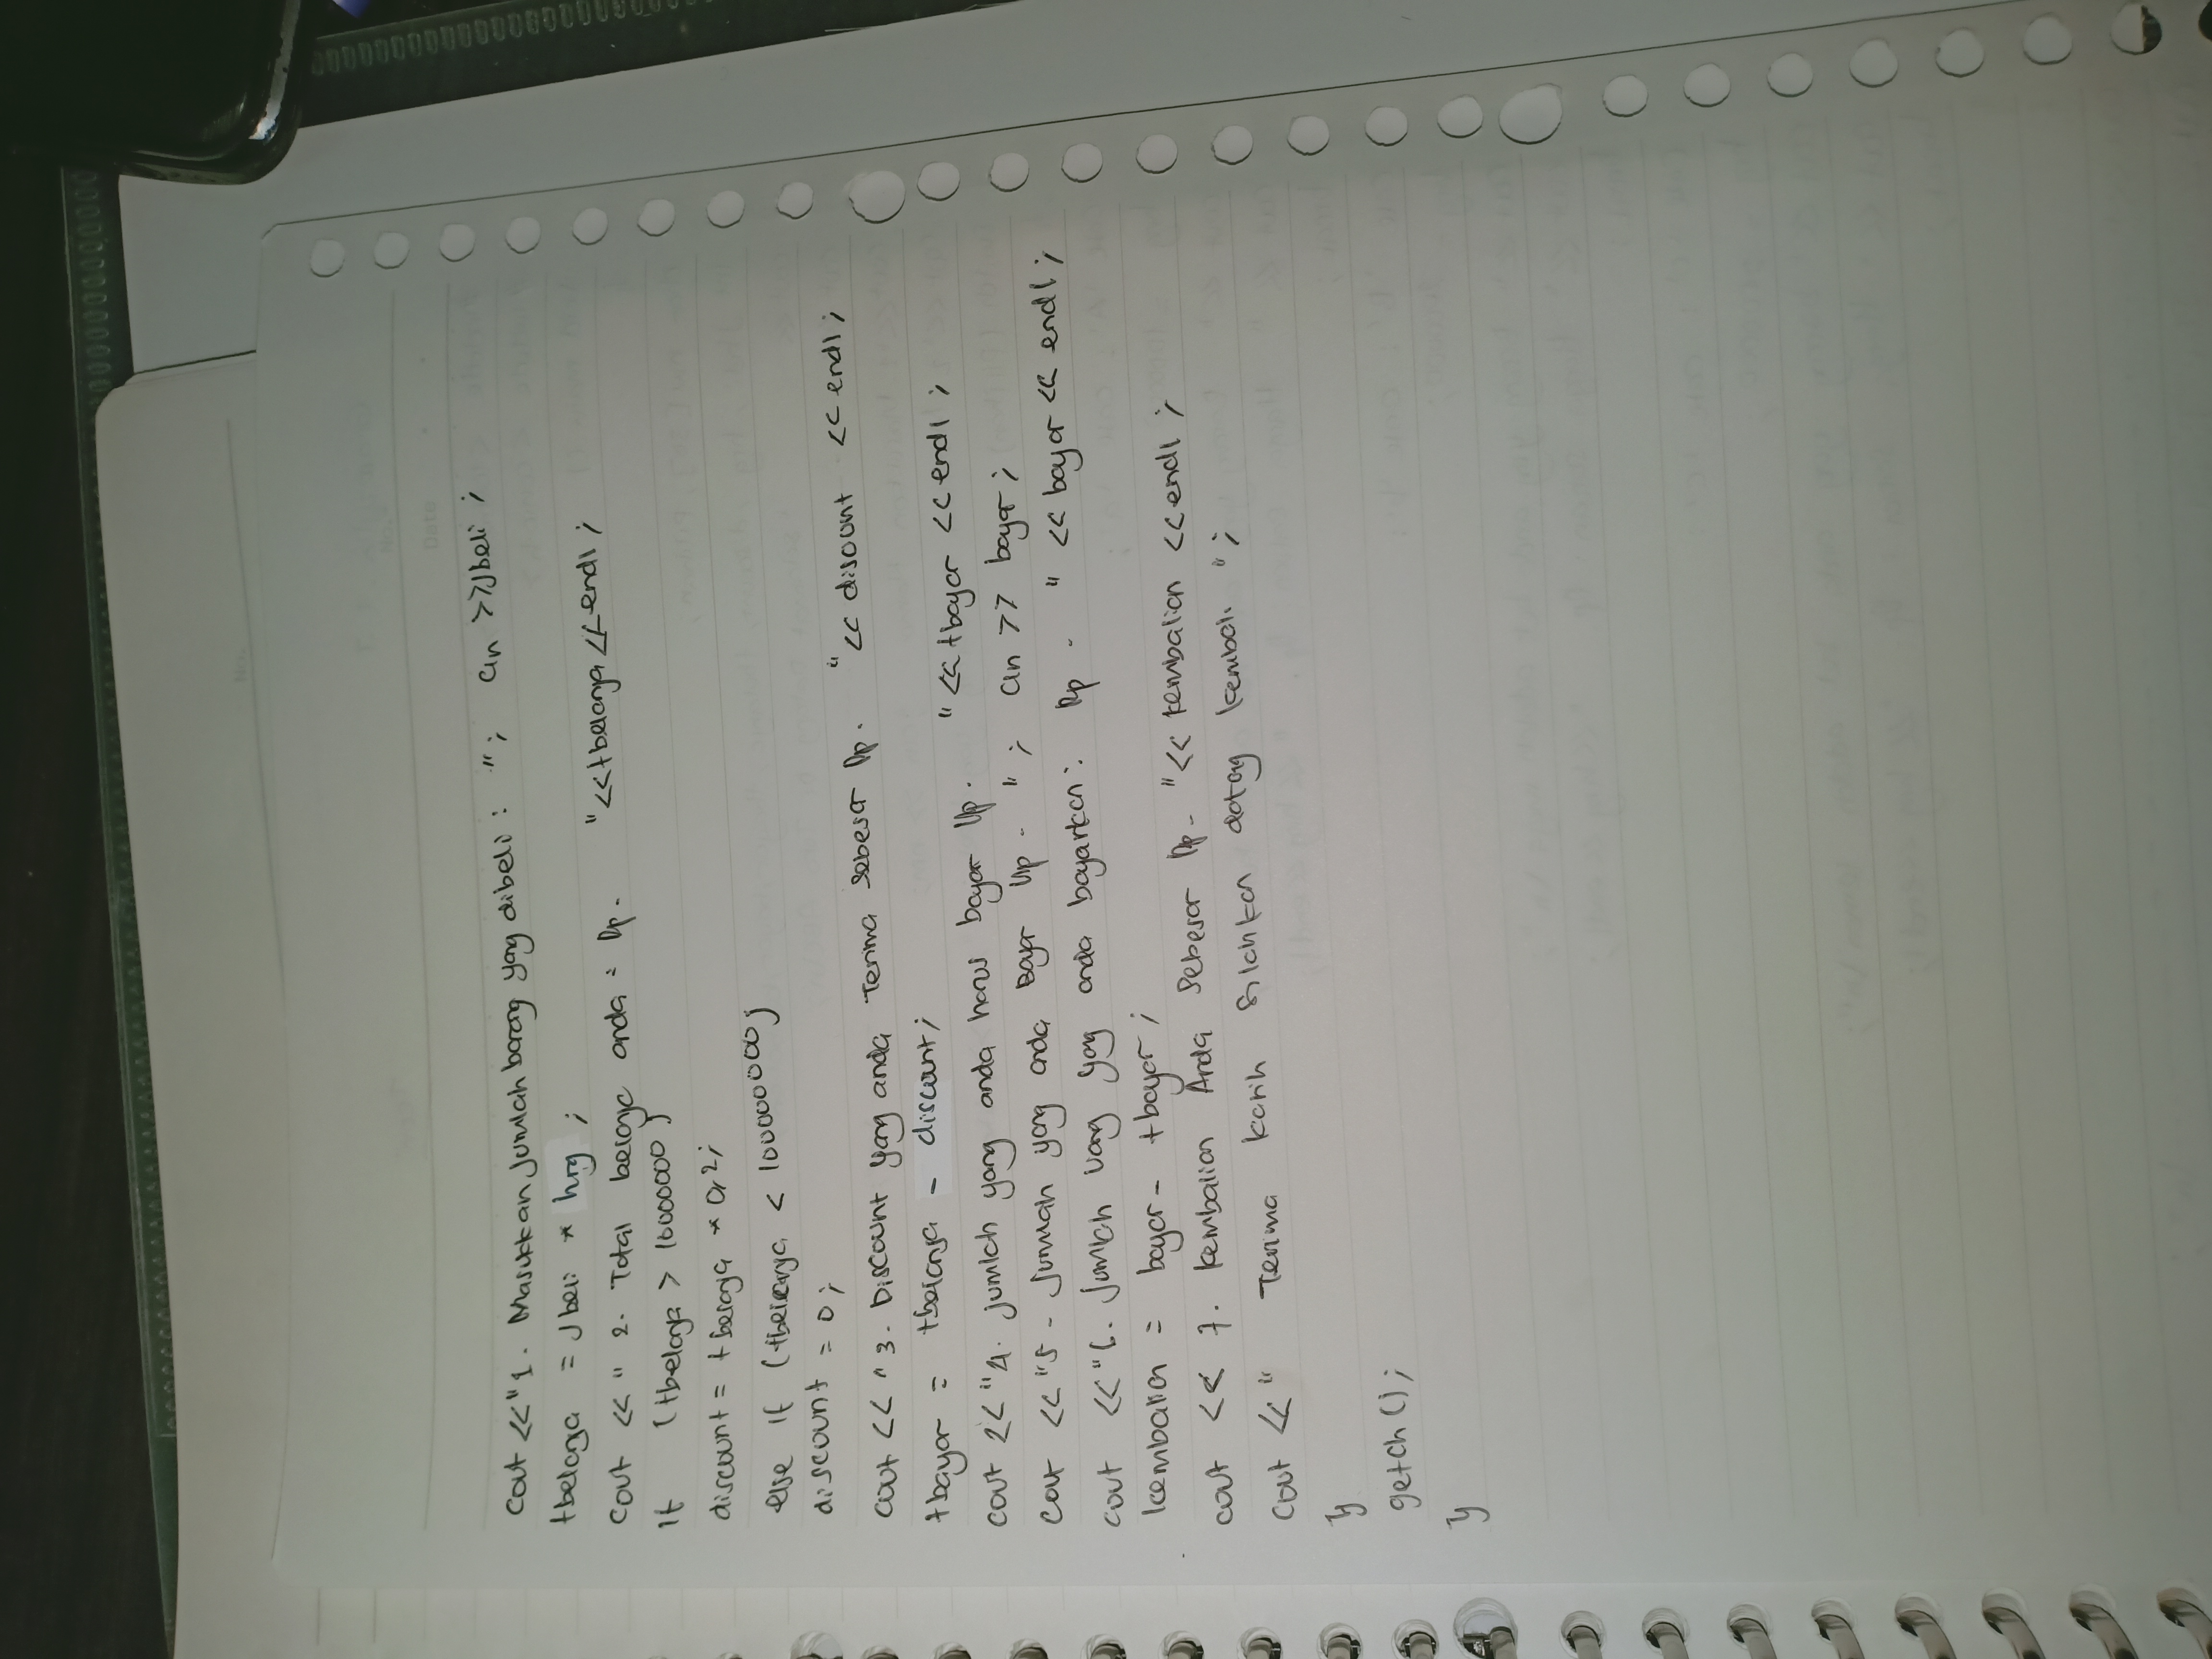 Date
cout <<"1. Masukkan jumlah barang yang dibeli : "; cin >>jbeli ;
tbelanja = jbeli * hrg ;
cout << " 2. Total belanja anda = Rp. "<<tbelanja<<endl;
If (tbelanja > 1000000)
discount = tbelanja * 0,2;
else if (tbelanja < 10000000)
discount = 0;
cout << "3. Discount yang anda Terima sebesar Rp. "<< disount << endl;
tbayar = tbelanja - discount;
cout << "4. jumlah yang anda harus bayar Rp. "<<tbayar <<endl;
cout <<"5 - Jumlah yang anda Bayar Rp - "; cin >> bayar;
cout <<"6. Jumlah uang yang anda bayarkan: Rp - " << bayar << endl;
kembalian = bayar - tbayar;
cout << 7. kembalian Anda sebesar Rp- "<< kembalian <<endl;
cout <<" Terima kasih silahkan datang kembali ";
y
getch();
y